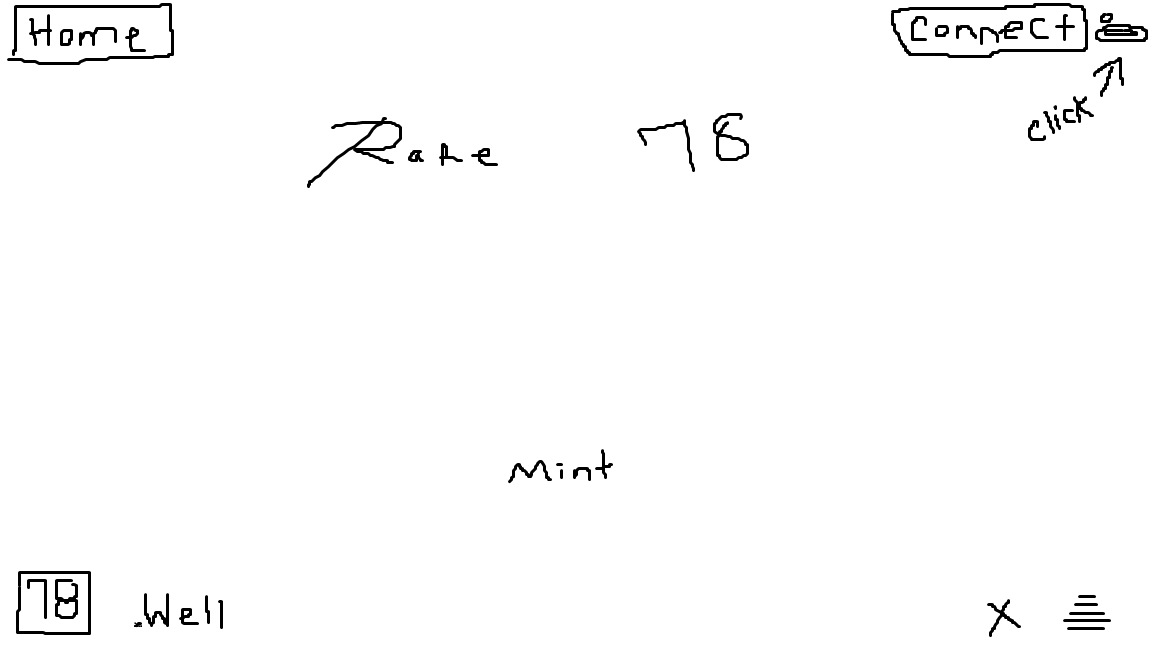 Home
Connect
Click
Rare 78
Mint
78 .Well
X